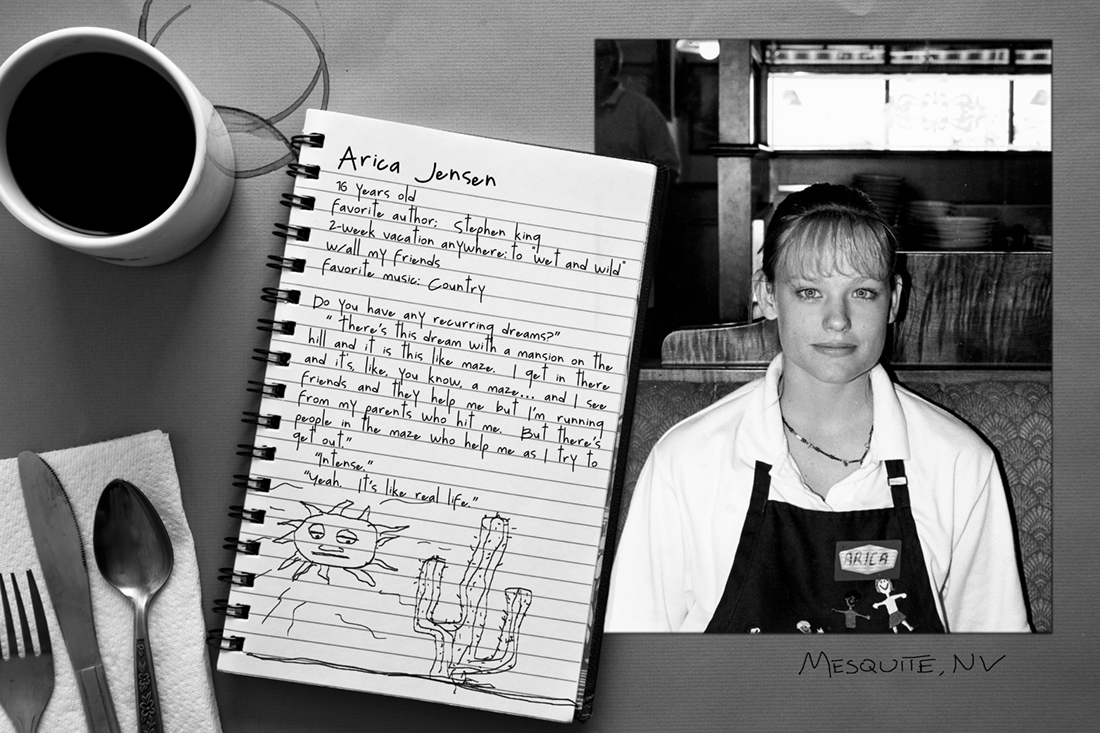 Arica Jensen
16 Years old
Favorite author: Stephen king
2-week vacation anywhere: to "wet and wild"
w/all my friends
Favorite music: Country
Do you have any recurring dreams?"
"There's this dream with a mansion on the
hill and it is this like maze. I get in there
and it's, like, you know, a maze... and I see
friends and they help me but I'm running
from my parents who hit me. But there's
people in the maze who help me as I try to
get out"
"Intense."
"Yeah. It's like real life."
ARICA
MESQUITE, NV